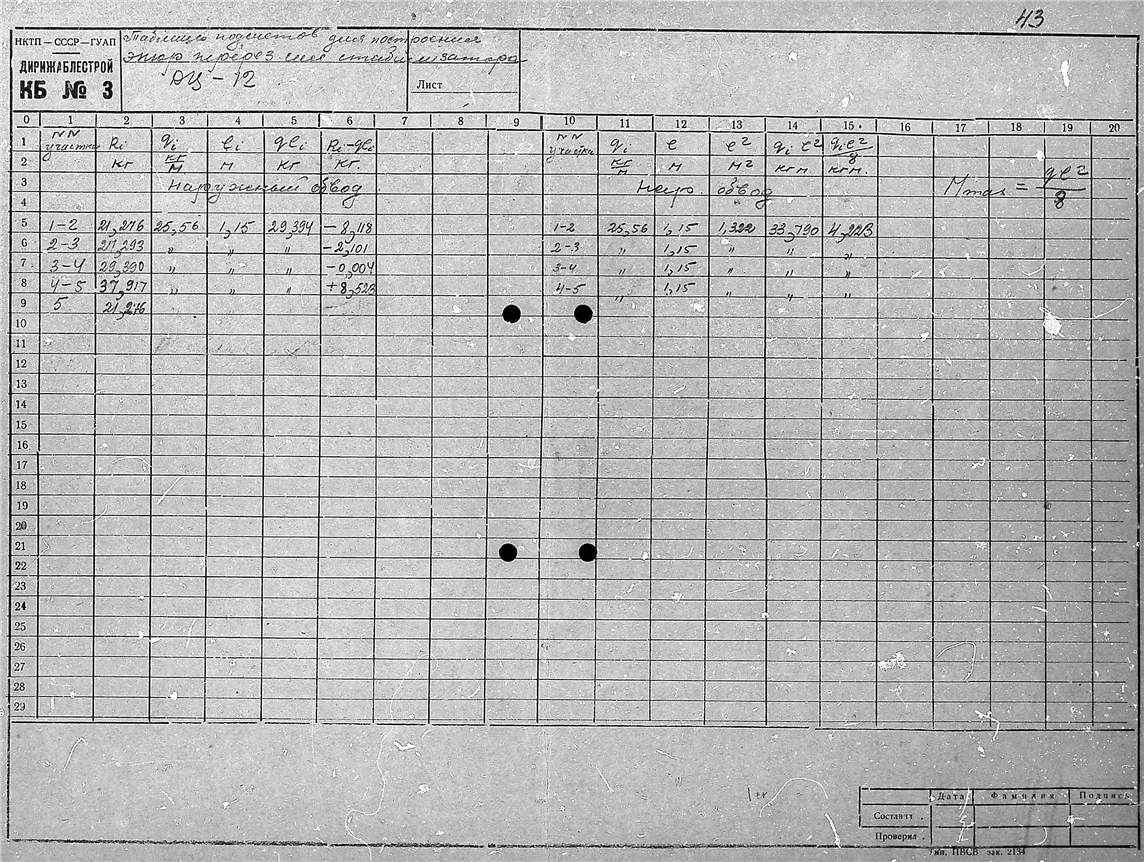 43
НКТП — СССР — ГУАП
ДИРИЖАБЛЕСТРОЙ
КБ № 3
Таблица подсчетов для построения
эпюр перерез. сил стабилизатора
ДЦ - 12
Лист
0 1 2 3 4 5 6 7 8 9 10 11 12 13 14 15 16 17 18 19 20
1 NN участка Ri qi ℓi qℓi Ri-qℓi NN участка qi ℓ ℓ² qi ℓ² qiℓ²/8
2 кг кг/м м кг кг. кг/м м м² кгм кгм.
3 Наружный обвод Нар. обвод Mmax = qℓ²/8
4
5 1-2 21,276 25,56 1,15 29,394 -8,118 1-2 25,56 1,15 1,322 33,790 4,223
6 2-3 27,293 „ „ „ -2,101 2-3 „ 1,15 „ „ „
7 3-4 29,390 „ „ „ -0,004 3-4 „ 1,15 „ „ „
8 4-5 37,917 „ „ „ +8,523 4-5 „ 1,15 „ „ „
9 5 21,276 -
10
11
12
13
14
15
16
17
18
19
20
21
22
23
24
25
26
27
28
29
Дата Фамилия Подпись
Составил .
Проверил .
Тип. ПВСВ зак. 2134